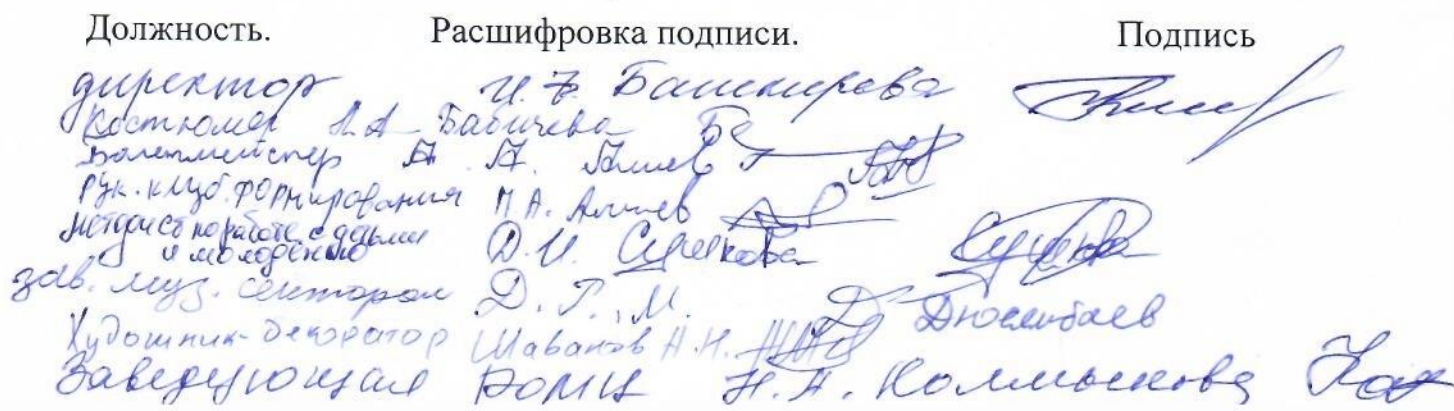 Должность. Расшифровка подписи. Подпись
директор И.В. Башкирева
Костюмер Л.А Бабичева
Балетмейстер А. А. Алиев
рук. клуб. формирования М.А. Алиев
методист по работе с детьми Д.И. Сучкова
и молодёжью
зав. муз. сектором Д. Г. М. Дюсенбаев
Художник-декоратор Шабанов А.Н.
Заведующая РОМЦ Н.А. Колмыкова